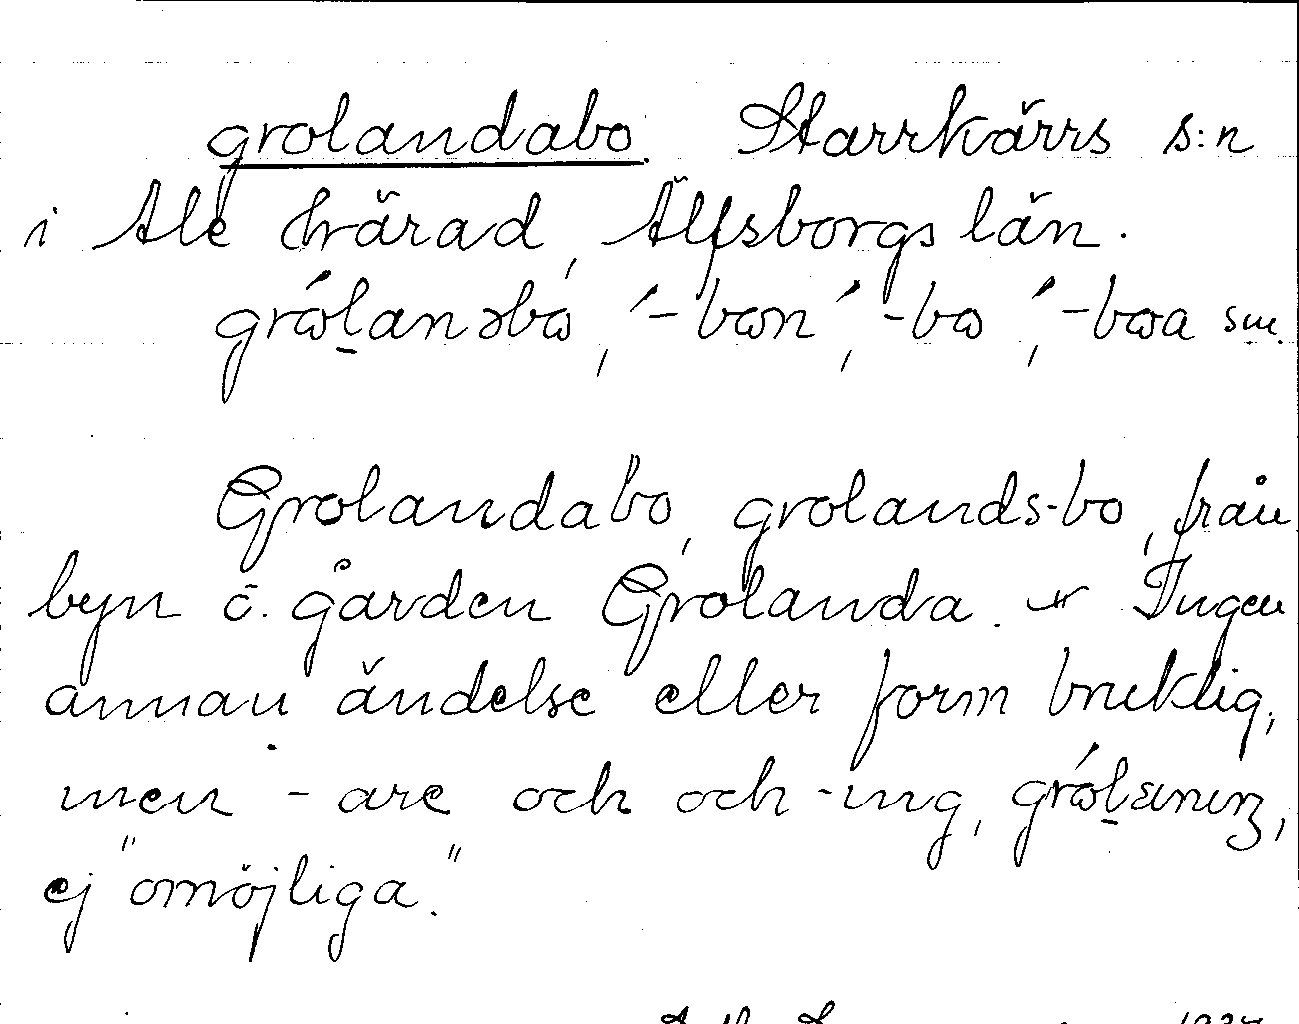 grolandabo. Starrkärrs s:n
i Ale härad, Älfsborgs län.
grólanəbo, ´-bon´, -bo ´, -boa sm.
Grolandabo, grolands-bo, från
byn o. gården Grolanda. Ingen
annan ändelse eller form bruklig,
men -are och och -ing,
ej "omöjliga."